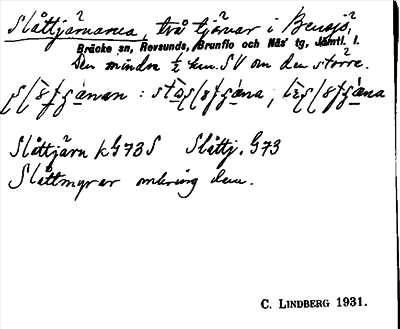 Slåttjärnarna, två tjärnar i Bensjö,
Bräcke sn, Revsunds, Brunflo och Näs' tg, Jämtl. l.
Den mindre ½ km. SV om den större.
Slåttjärn kG73S Slåttj. G73
Slåttmyrar omkring dem.
C. LINDBERG 1931.